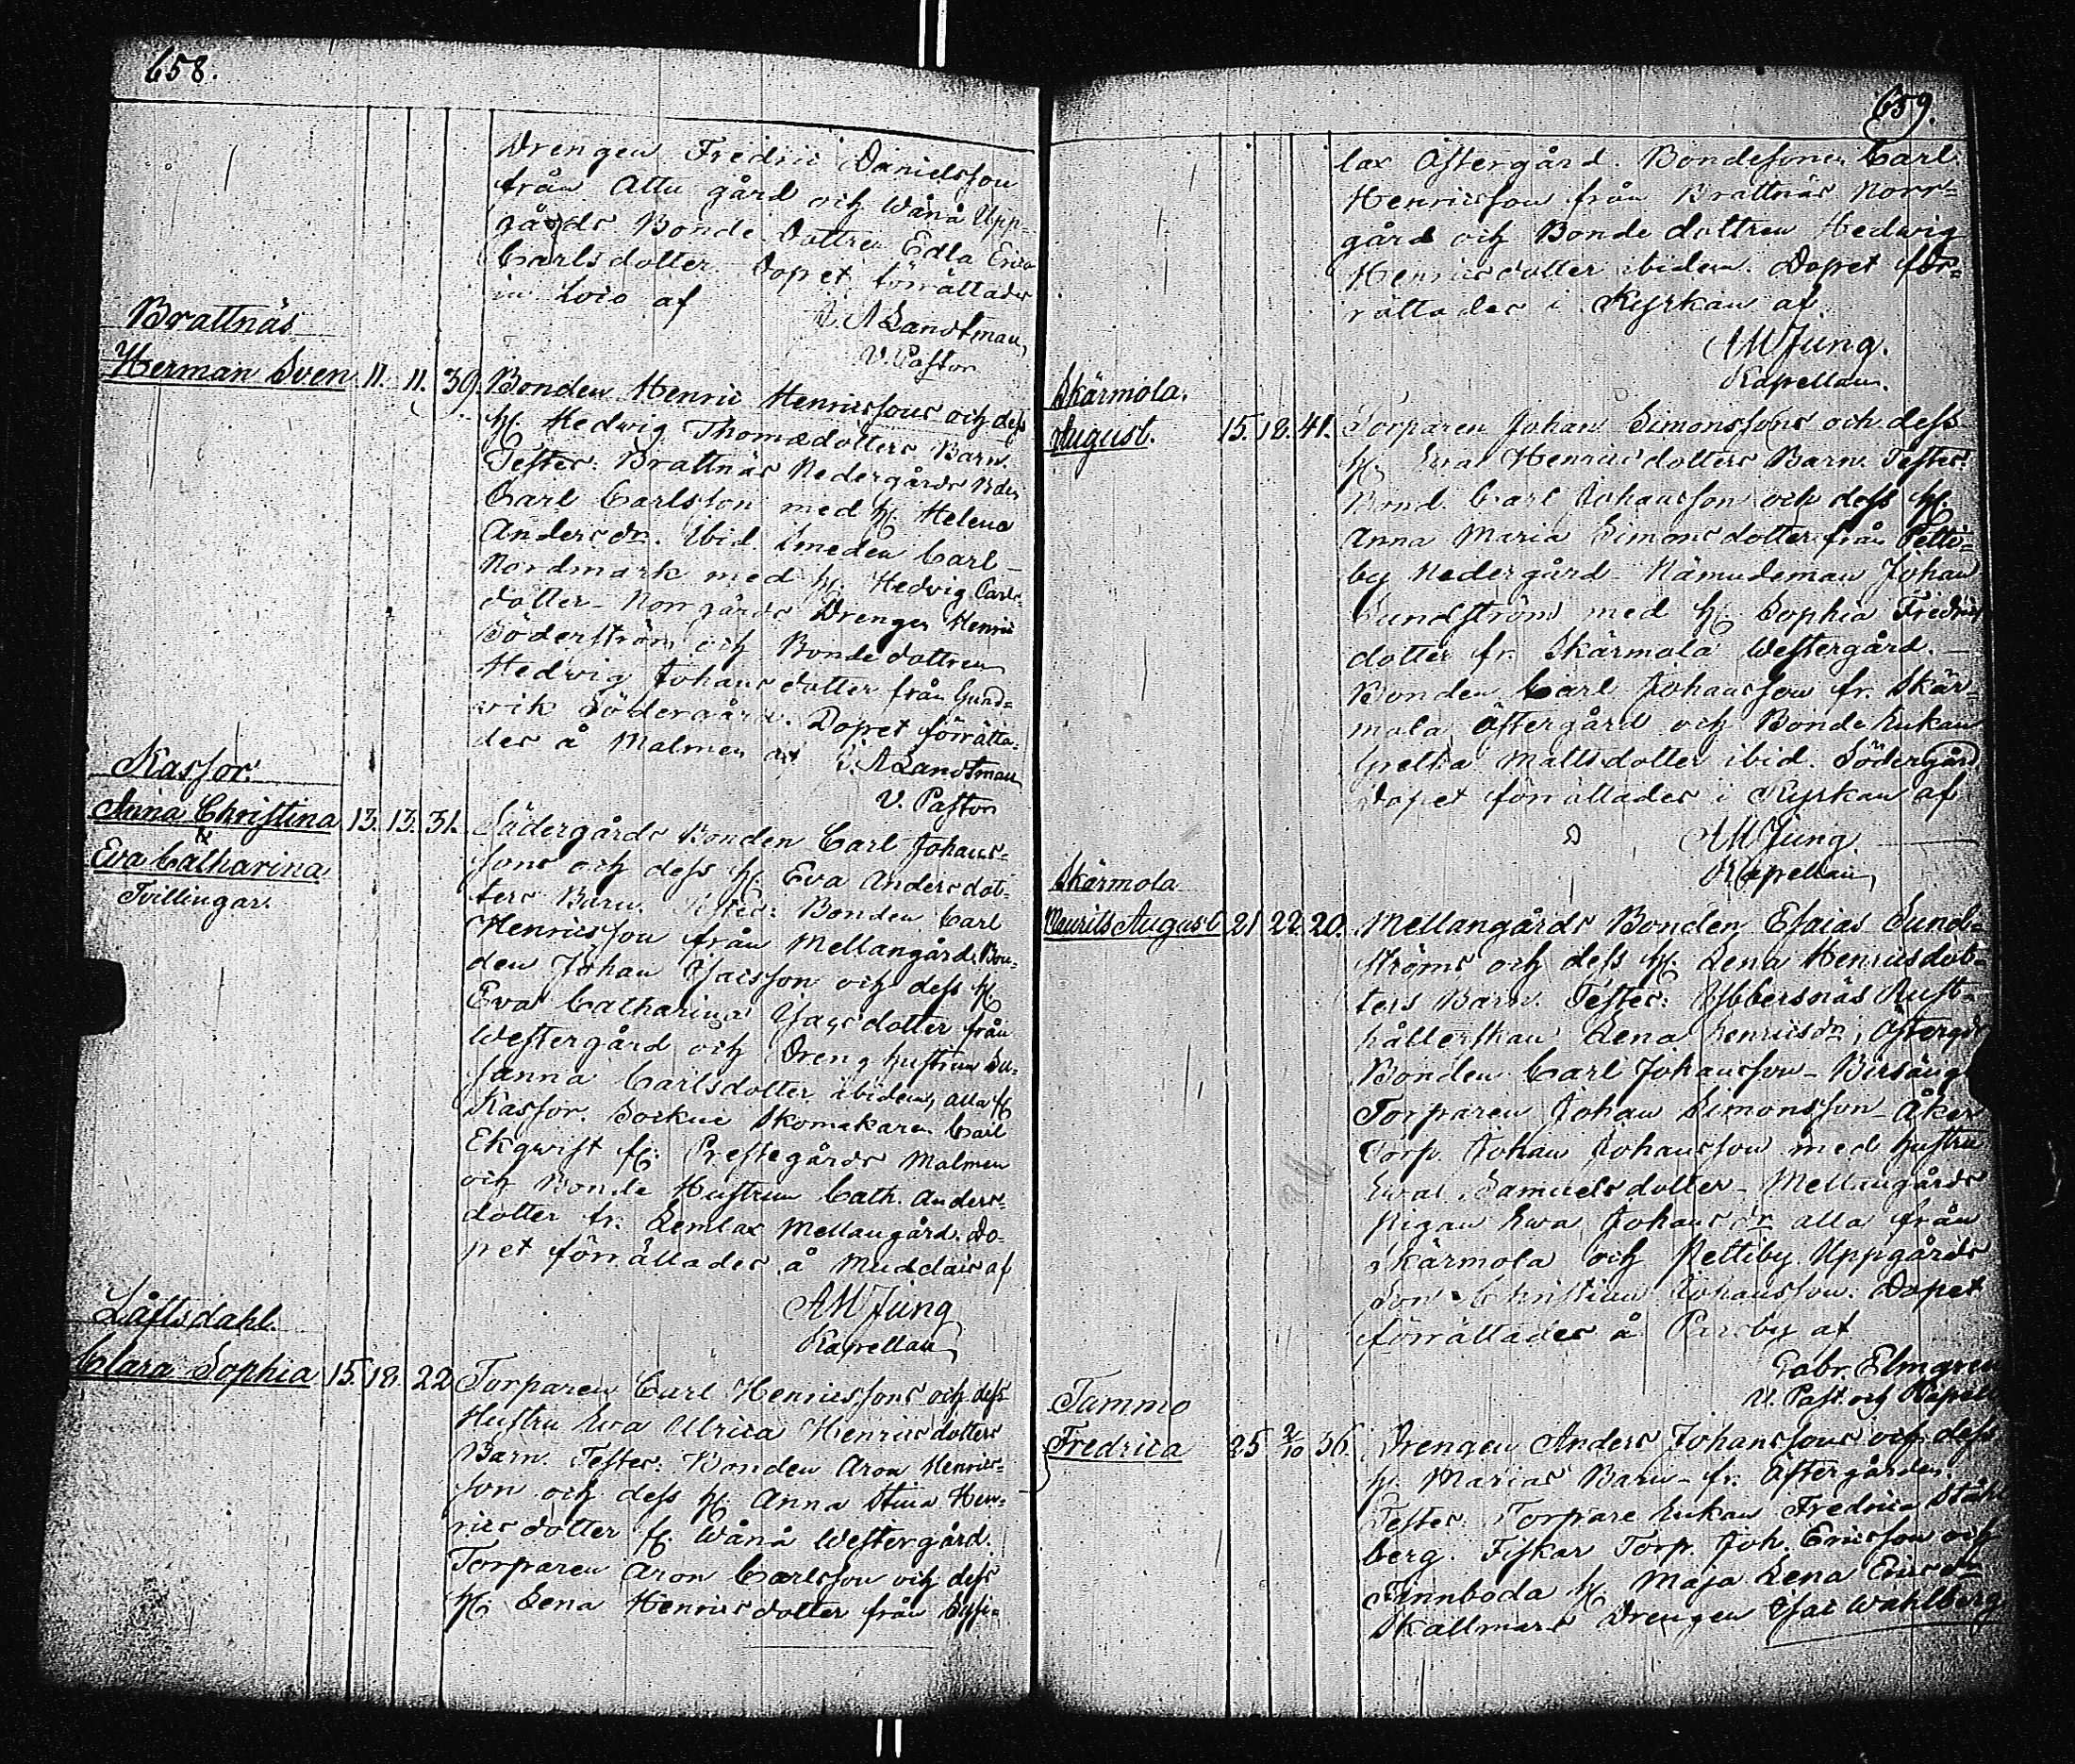 658.
Drengen Fredric Danielsson
från Attu gård och Wånå Upp-
gårds Bonde Dottren Edla Erica
Carlsdotter. Dopet förrättades
in Loco af
A Sandtman,
V. Pastor
Brattnäs
Herman Sven 11. 11. 39. Bonden Henric Henricssons och dess
H. Hedwig Thomædotters Barn.
Testes: Brattnäs Nedergårds Bden
Carl Carlsson med H. Helena
Andersdr. Ibid. Smeden Carl
Nordmark med H. Hedvig Carls-
dotter - Norrgårds Drengen Henric
Söderström och Bonde dottren
Hedwig Johansdotter från Gund-
vik Södergård. Dopet förrätta-
des å Malmen af A Sandtman
V. Pastor
Kassor.
Anna Christina 13. 13. 31. Södergårds Bonden Carl Johans-
sons och dess H. Eva Andersdot-
Eva Catharina
ters Barn. Testes: Bonden Carl
Tvillingar.
Henricsson från Mellangård. Bon-
den Johan Isaisson och dess H.
Eva Catharina Isacsdotter från
Westergård och Dreng hustrun Su-
sanna Carlsdotter ibidem, alla fr.
Kassor. Sockne Skomakaren Carl
Ekqwist fr. Prestegårds Malmen
och Bonde Hustrun Cath. Anders-
dotter fr. Lemlax Mellangård. Do-
pet förrättades å Muddais af
AM Jung
Kapellan,
Låftsdahl.
Clara Sophia 15. 18. 22 Torparen Carl Henricssons och dess
Hustru Eva Ulrica Henricsdotters
Barn. Testes: Bonden Aron Henrics-
son och dess H. Anna Stina Hen-
ricsdotter fr. Wånå Westergård.
Torparen Aron Carlsson och dess
H. Lena Henricsdotter från
659.
lax Östergård. Bondesonen Carl
Henricsson från Brattnäs Norr-
gård och Bonde dottren Hedwig
Henricsdotter ibidem. Dopet för-
rättades i Kyrkan af
AM Jung.
Kapellan.
Skärmola.
August. 15. 18. 41. Torparen Johan Simonssons och dess
H. Eva Henricsdotters Barn. Testes:
Bond. Carl Johansson och dess H.
Anna Maria Simonsdotter från Petti-
by Nedergård - Nämndeman Johan
Sundström med H. Sophia Fredrics
dotter fr. Skärmola Westergård. -
Bonden Carl Johansson fr. Skär-
mola Östergård och Bonde Enkan
Greta Mattsdotter ibid. Södergård
Dopet förrättades i Kyrkan af
AM Jung.
Kapellan,
Skärmola
Maurits August 21 22. 20. Mellangårds Bonden Esaias Sund-
ströms och dess H. Lena Henricsdot-
ters Barn. Testes: Ybbersnäs Rust-
hållerskan Lena Henricsdr, Östergds
Bonden Carl Johansson -
Torparen Johan Simonsson - Åker
Torp. Johan Johansson med hustru
Eva Samuelsdotter - Mellangårds
pigan Ewa Johansdr alla från
Skärmola och Pettiby Uppgårds
Son Christian Johansson. Dopet
förrättades å Parsby af
Gabr. Elmgren
V. Past. och Kapell
Tammo
Fredrica 25 2/10 36. Drengen Anders Johanssons och dess
H. Marias Barn - fr. Östergården.
Testes: Torpare Enkan Fredrica Ståhl
berg. Fiskar Torp. Joh. Ericsson och
Finnboda H. Maja Lena Ericsdr
Skallmars Drengen Isac Wahlberg